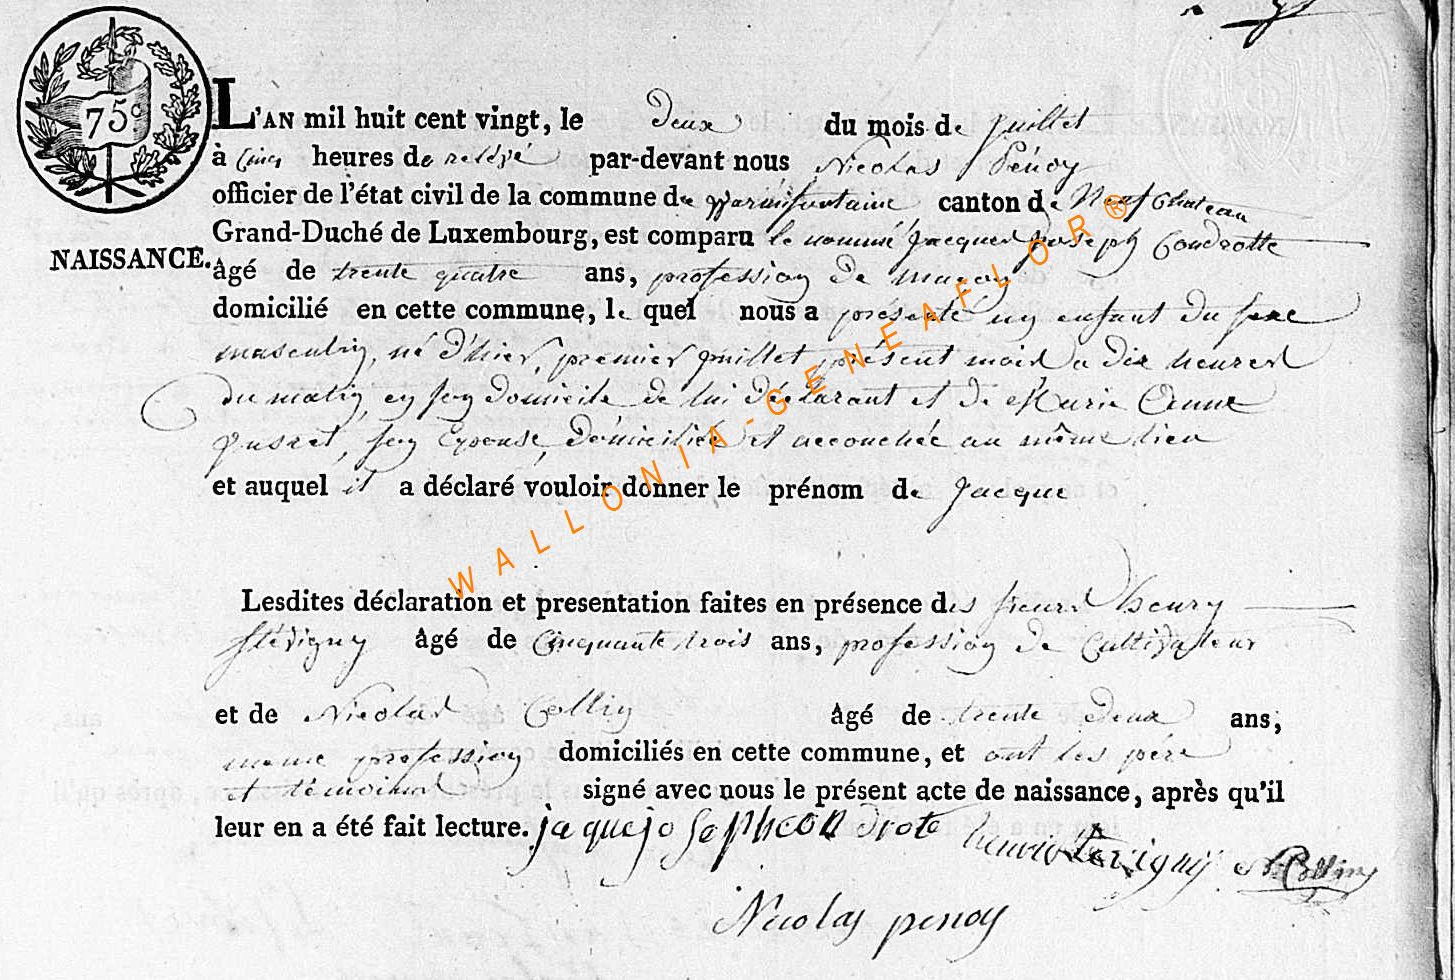 75c
L'AN mil huit cent vingt, le Deux du mois de juillet
à Cinq heures de relevé par-devant nous Nicolas Pénoy
officier de l'état civil de la commune de Warmifontaine canton de Neufchateau
Grand-Duché de Luxembourg, est comparu le nommé Jacques Joseph Condrotte
NAISSANCE.
âgé de trente quatre ans, profession de maçon
domicilié en cette commune, lequel nous a présenté un enfant du sexe
masculin, né d'hier, premier juillet présent mois a dix heures
du matin en son domicile de lui déclarant et de Marie Anne
son Epouse, domiciliée et accouchée au même lieu
et auquel il a déclaré vouloir donner le prénom de Jacque
Lesdites déclaration et presentation faites en présence des sieurs henry
Stévigny âgé de Cinquante trois ans, profession de Cultivateur
et de Nicolas Collin âgé de trente deux ans,
meme profession domiciliés en cette commune, et ont les pére
et témoins signé avec nous le présent acte de naissance, après qu'il
leur en a été fait lecture. jaque joseph condrote henri stevigny N Collin
Nicolas penoy
WALLONIA-GENEAFLOR®